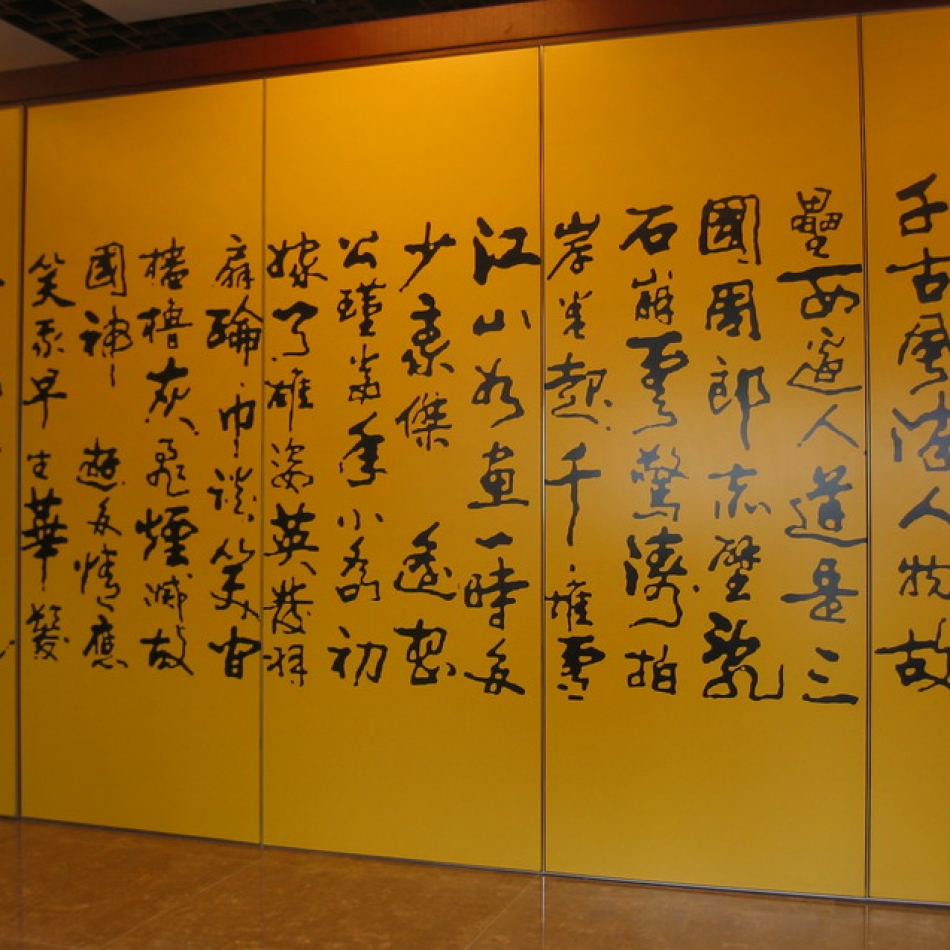 千古風流人物故
壘西邊人道是三
國周郎赤壁亂
石崩雲驚濤拍
岸卷起千堆雪
江山如畫一時多
少豪傑 遙想
公瑾當年小喬初
嫁了雄姿英發羽
扇綸巾談笑間
檣櫓灰飛煙滅故
國神 遊多情應
笑我早生華髮